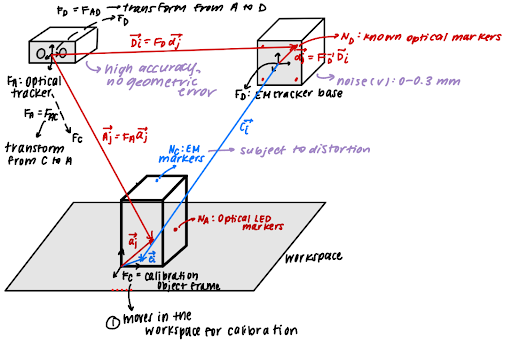 F_D = F_AD → transform from A to D
F_D
D⃗_i = F_D d⃗_j
N_D : known optical markers
d⃗_j = F_D⁻¹ D⃗_i
high accuracy,
no geometric
error
noise (v) : 0-0.3 mm
F_A : Optical
tracker
F_D : EM tracker base
F_A = F_AC
F_C
transform
from C to A
A⃗_j = F_A a⃗_j
C⃗_i
N_C : EM
markers
subject to distortion
N_A : Optical LED
markers
a⃗_j
c⃗_i
workspace
F_C = calibration
object frame
① moves in the
workspace for calibration